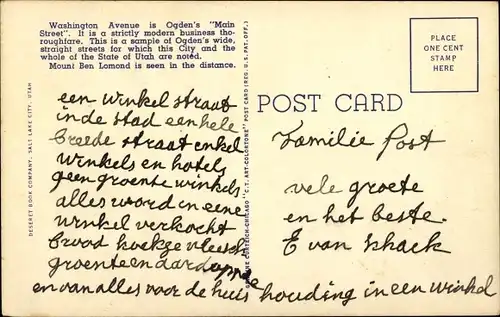 Washington Avenue is Ogden's "Main
Street". It is a strictly modern business tho-
roughfare. This is a sample of Ogden's wide,
straight streets for which this City and the
whole of the State of Utah are noted.
Mount Ben Lomond is seen in the distance.
een winkel straat
in de stad een hele
breede straat enkel
winkels en hotels
geen groente winkels
alles word in eene
winkel verkocht
brood koekje vleesch
groente en aardappele
en van alles voor de huis houding in een winkel
DESERET BOOK COMPANY, SALT LAKE CITY, UTAH
CURTEICH-CHICAGO "C.T. ART-COLORTONE" POST CARD (REG. U.S. PAT. OFF.)
POST CARD
PLACE
ONE CENT
STAMP
HERE
Familie Post
vele groete
en het beste.
E van Schack